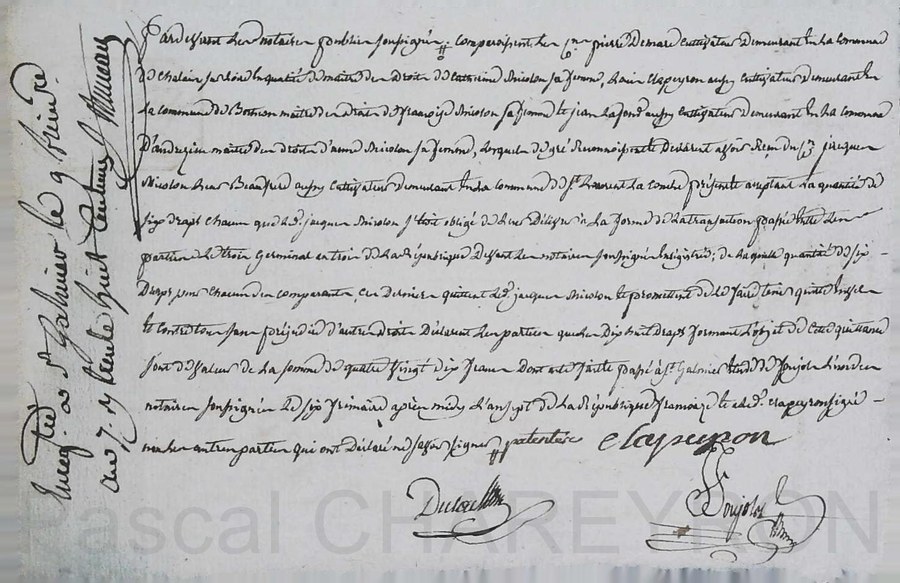 Pardevant les notaires publics soussignés comparoissent les Cns pierre Demare Cultivateur Demeurant En La Commune
De Chalain sur Loire En qualité de maitre des Droits de Catherine Nicolon sa femme, Clapeyron aussy Cultivateur demeurant En
La Commune de maitre des Droits de françoise Nicolon sa femme Et jean Lafond aussy Cultivateur Demeurant En La Commune
D'andrezieu maitre des droits d'anne Nicolon sa femme, Lesquels de gré Reconnoissent Et Declarent avoir Reçu du Cn jacques
Nicolon Leur Beaufrere aussy Cultivateur demeurant En La Commune de St Laurent La Conche présent Et aceptant La quantité de
six draps chacun que Led. jacques Nicolon s'etoit obligé de Leur Délivrer a La forme de La transaction passée Entre Les
parties Le trois Germinal an trois de La République Devant Les notaires soussignés Enregistrée; de Laquelle quantité de six
Draps pour chacun des comparants, ces Derniers quittent Led. jacques Nicolon Et promettent de Le faire tenir quitte Envers
Et Contre tous sans préjudice d'autres droits Déclarent Les parties que Les Dix huit draps formant L'objet de Cette quittance
sont de Valeur de La somme de quatre Vingt dix francs Dont acte fait Et passé à St Galmier Etude de Poujol L'un des
notaires soussignés Le six frimaire après midy L'an sept de La République française Et a Led. Clapeyron signé
non Les autres parties qui ont Déclaré ne savoir signer patentés Clapeyron
Poujol
Enregistré a St Galmier le 9 frimaire
an 7. R trente huit Centimes
Pascal CHAREYRON